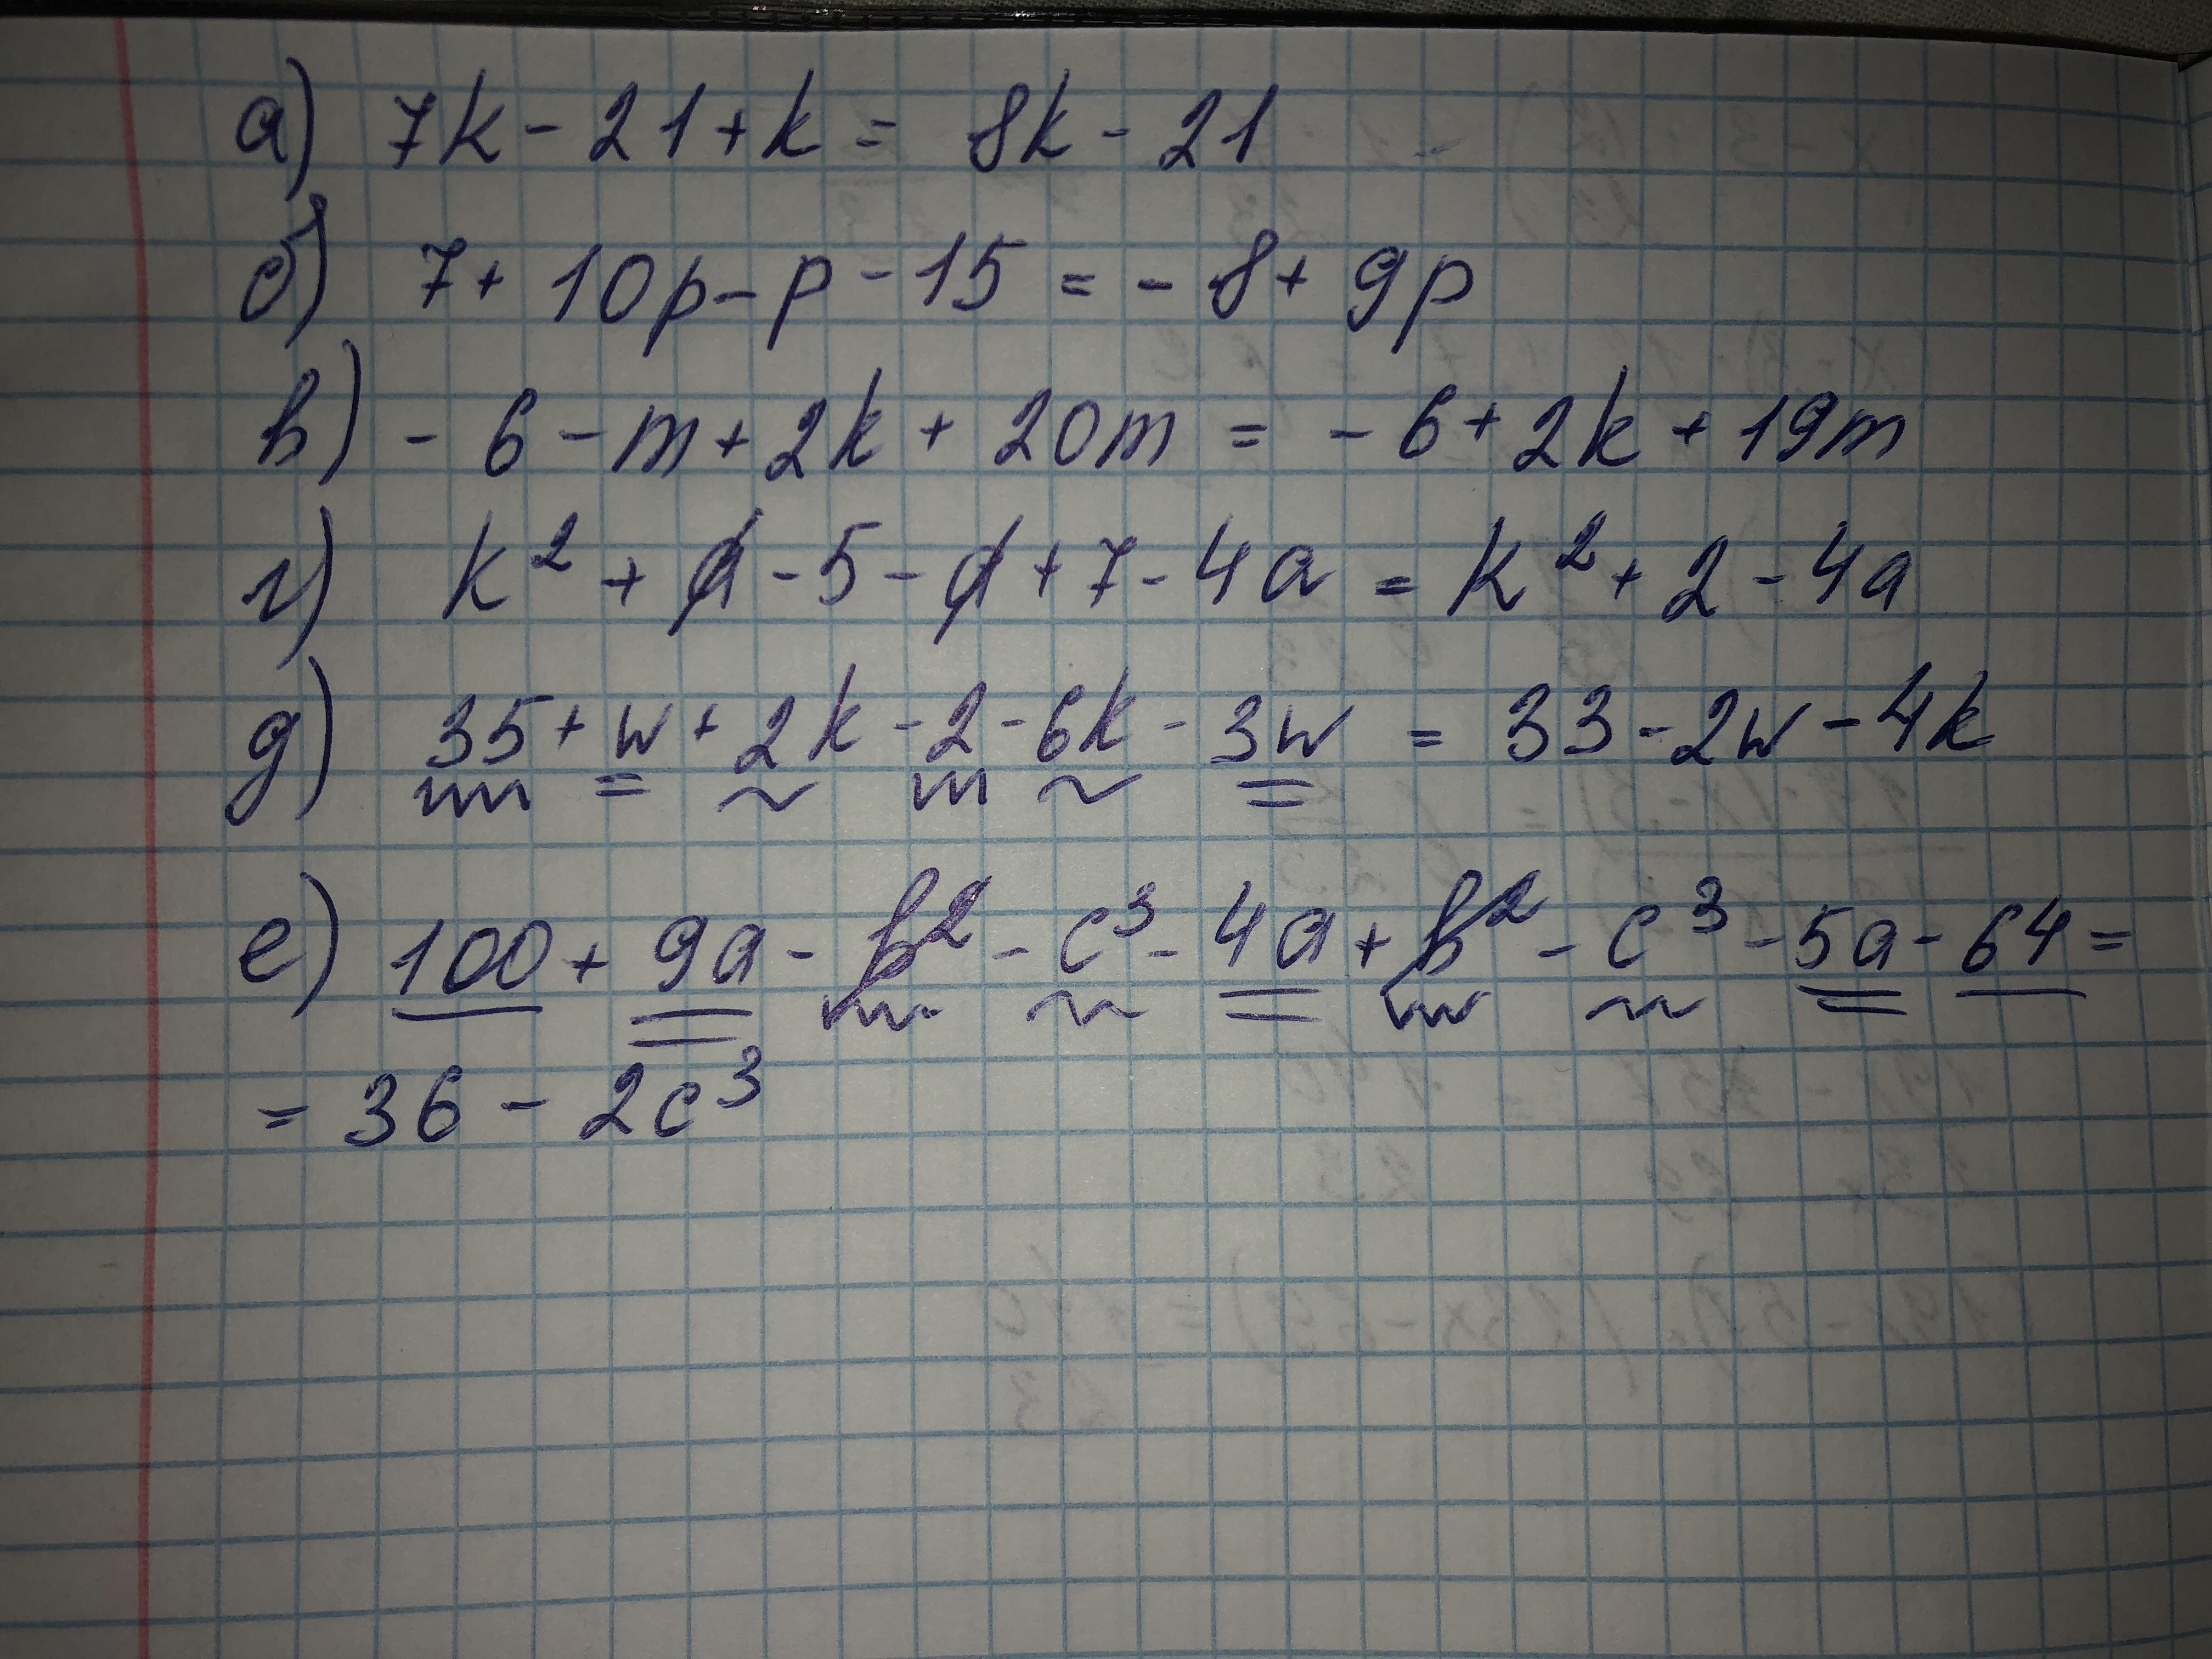 а) 7k - 21 + k = 8k - 21
б) 7 + 10p - p - 15 = - 8 + 9p
в) - 6 - m + 2k + 20m = - 6 + 2k + 19m
г) k² + a - 5 - a + 7 - 4a = k² + 2 - 4a
д) 35 + w + 2k - 2 - 6k - 3w = 33 - 2w - 4k
е) 100 + 9a - b² - c³ - 4a + b² - c³ - 5a - 64 =
= 36 - 2c³